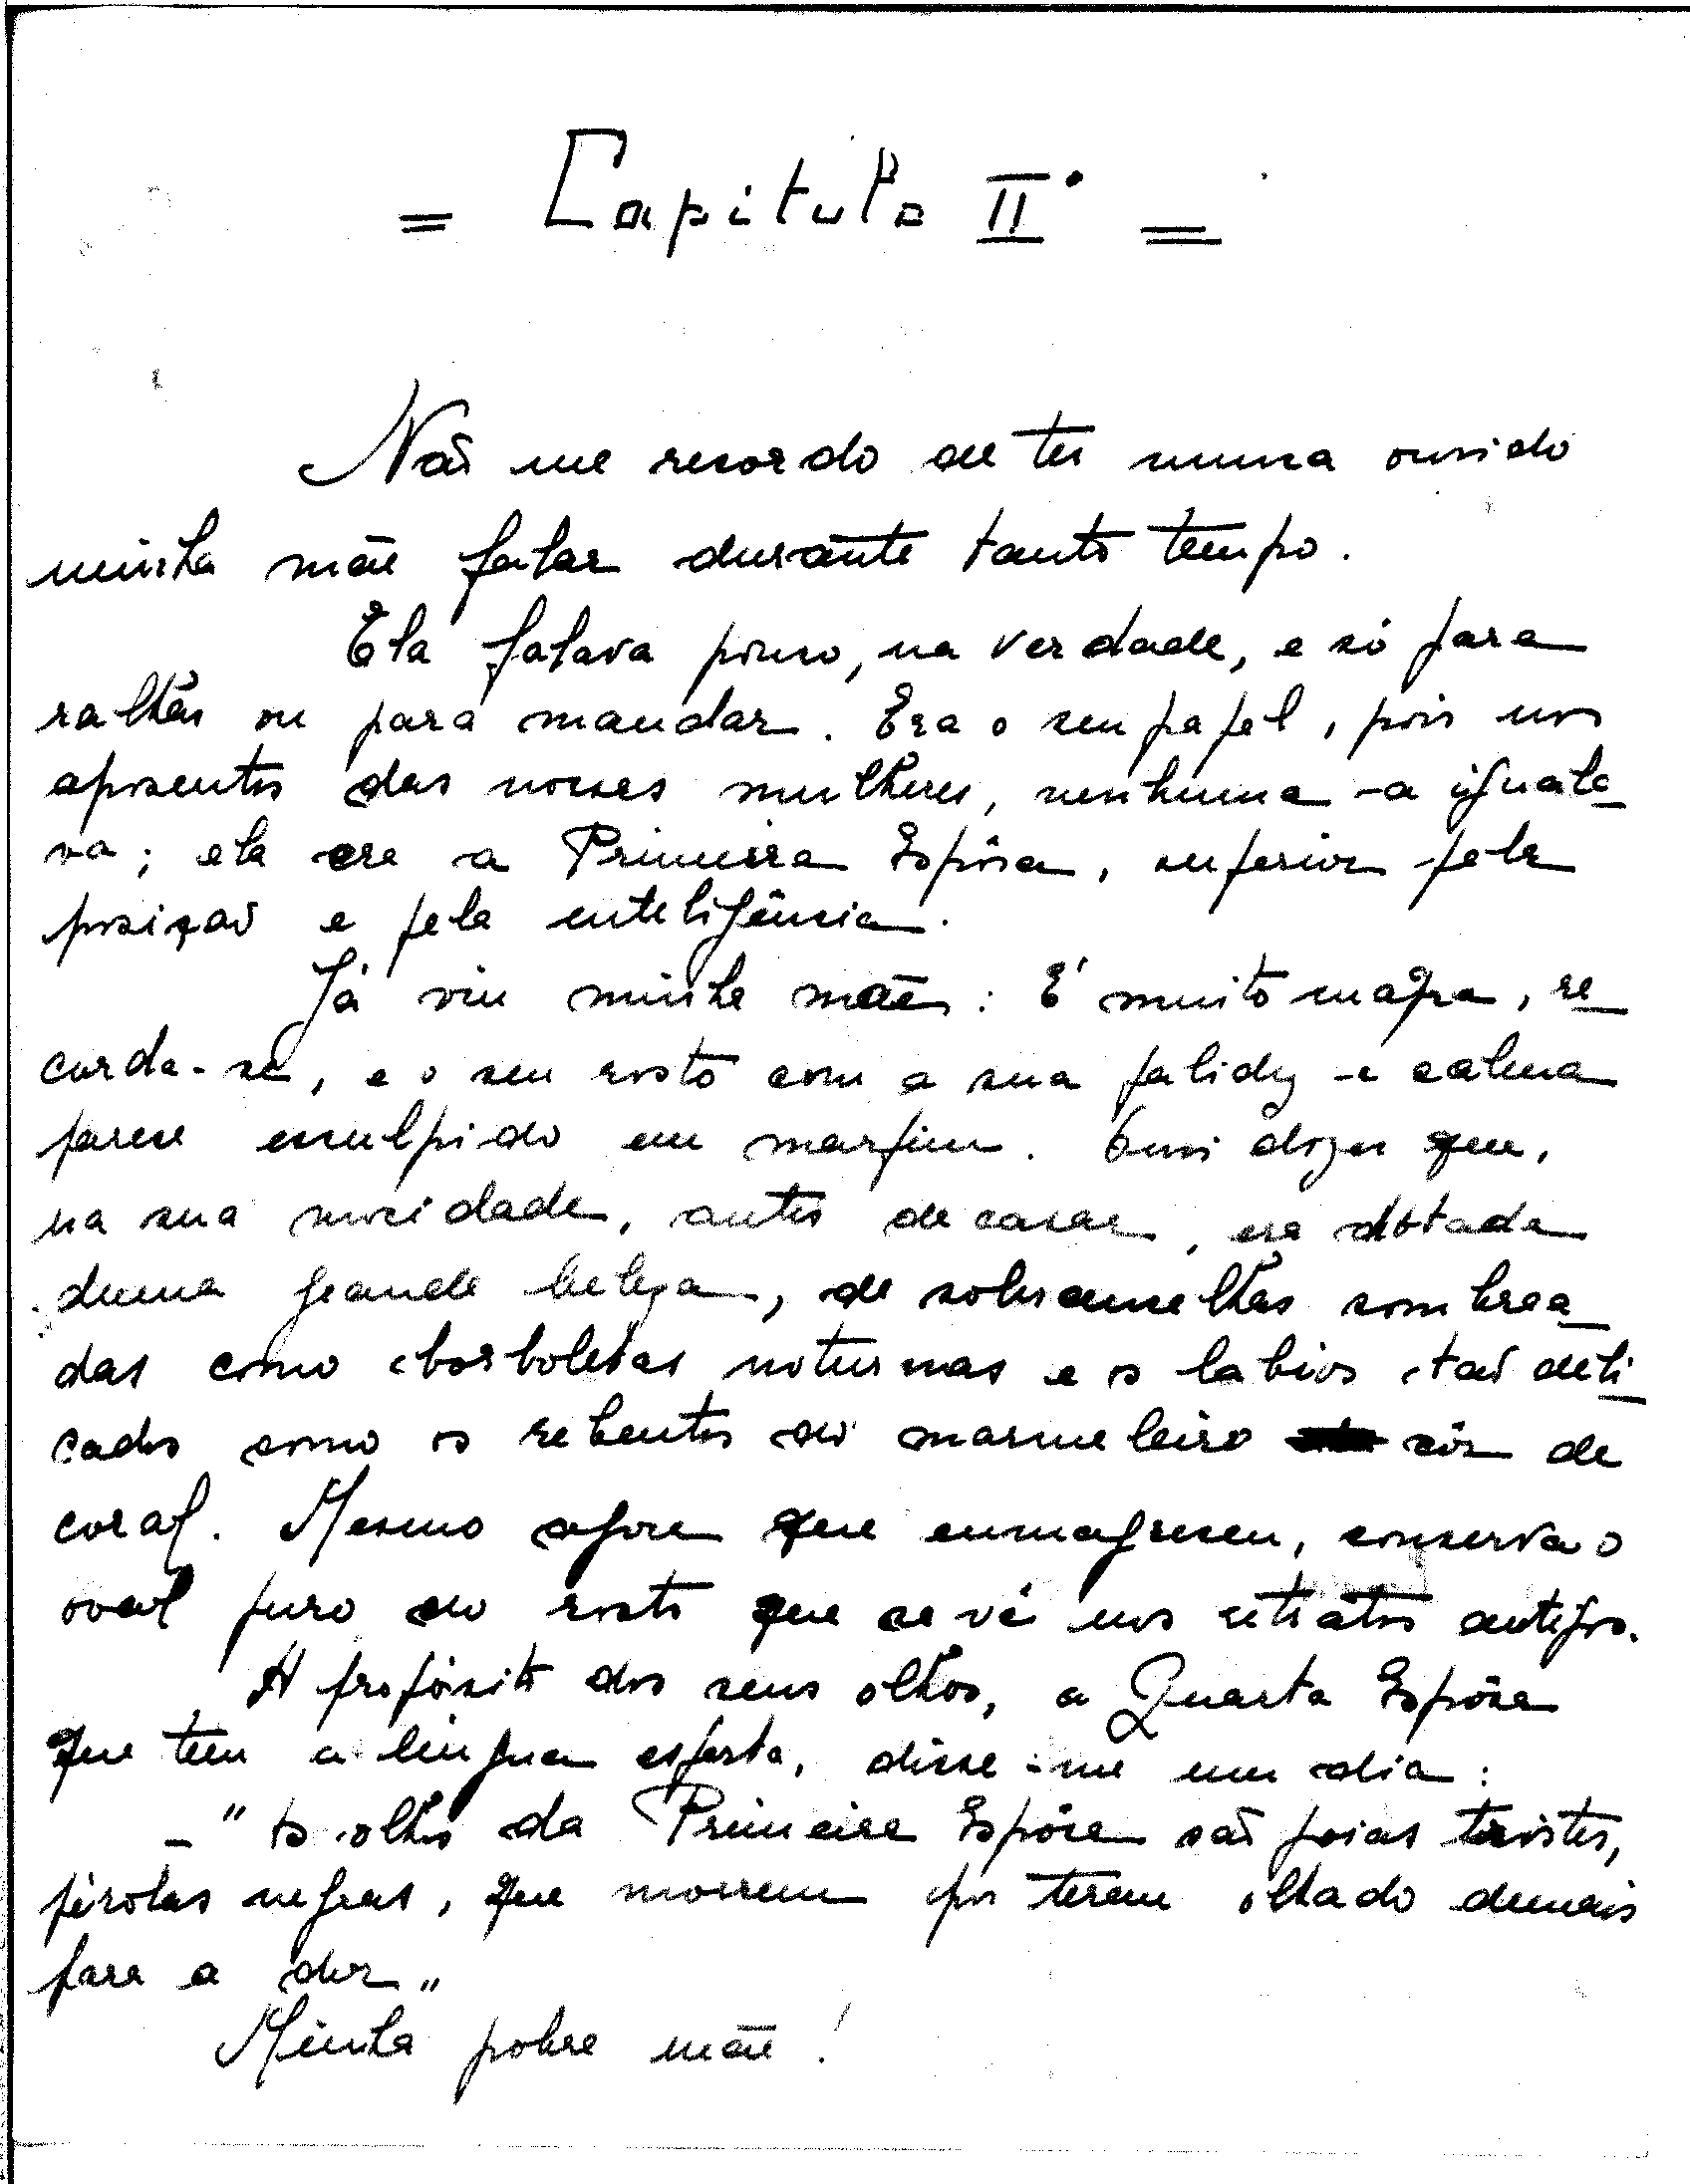 = Capítulo II° =
Não me recordo de ter nunca ouvido
minha mãe falar durante tanto tempo.
Ela falava pouco, na verdade, e só para
ralhar ou para mandar. Era o seu papel, pois nos
aposentos das nossas mulheres, nenhuma a iguala-
va; ela era a Primeira Espôsa, superior pela
posição e pela inteligência.
Já viu minha mãe: É muito magra, re-
corda-se, e o seu rosto com a sua palidez e calma
parece esculpido em marfim. Ouvi dizer que,
na sua mocidade, antes de casar, era dotada
duma grande beleza, de sobrancelhas sombrea-
das como borboletas noturnas e os labios tão deli-
cados como os rebentos do marmeleiro côr de
coral. Mesmo agora que enmagreceu, conserva o
oval puro do rosto que se vê nos retratos antigos.
A propósito dos seus olhos, a Quarta Espôsa
que tem a lingua esperta, disse-me um dia:
- "Os olhos da Primeira Espôsa são joias tristes,
pérolas negras, que morrem por terem olhado demais
para a dor"
Minha pobre mãe!